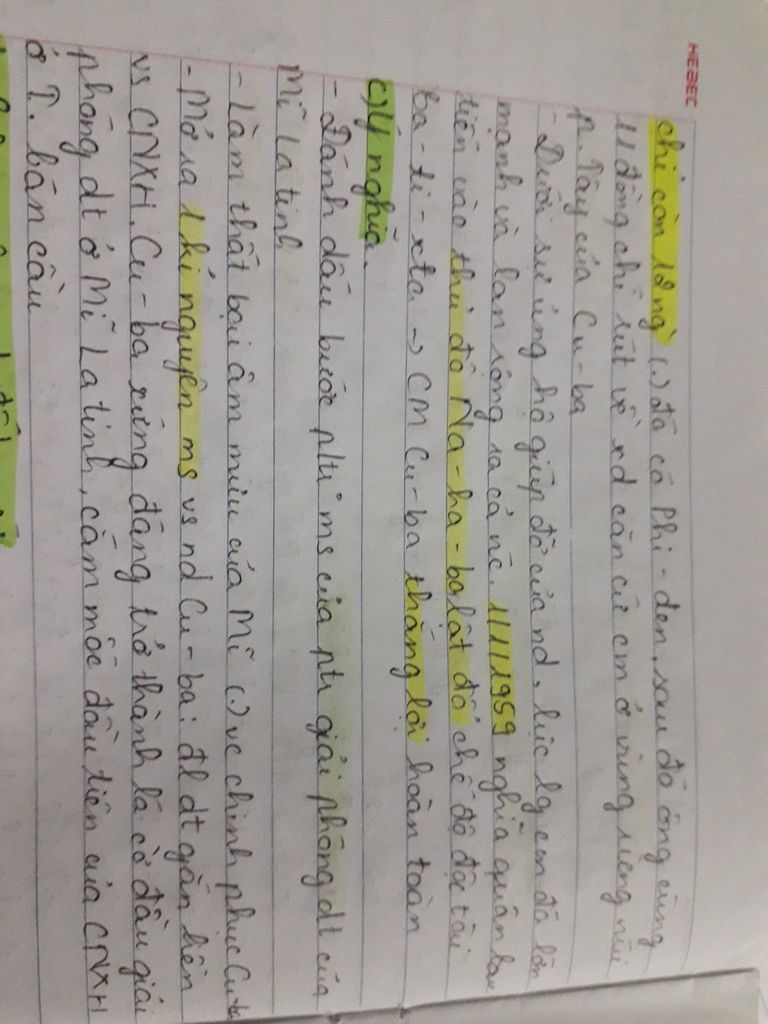 HEBEC
chỉ còn 12 ng` (.) đó có Phi-đen, sau đó ông cùng
11 đồng chí rút về xd căn cứ cm ở vùng rừng núi
p. Tây của Cu-ba
- Dưới sự ủng hộ giúp đỡ của nd, lực lg cm đã lớn
mạnh và lan rộng ra cả nc. 1/1/1959 nghĩa quân
tiến vào thủ đô La-ha-ba lật đổ chế độ độc tài
Ba-ti-xta → CM Cu-ba thắng lợi hoàn toàn
c) Ý nghĩa.
- Đánh dấu bước ptr ms của ptr giải phóng dt của
Mĩ Latinh
- Làm thất bại âm mưu của Mĩ (.) vc chinh phục Cu-ba
- Mở ra 1 kỉ nguyên ms vs nd Cu-ba: đl dt gắn liền
vs CNXH. Cu-ba xứng đáng trở thành lá cờ đầu giải
phóng dt ở Mĩ Latinh, cắm mốc đầu tiên của CNXH
ở T. bán cầu